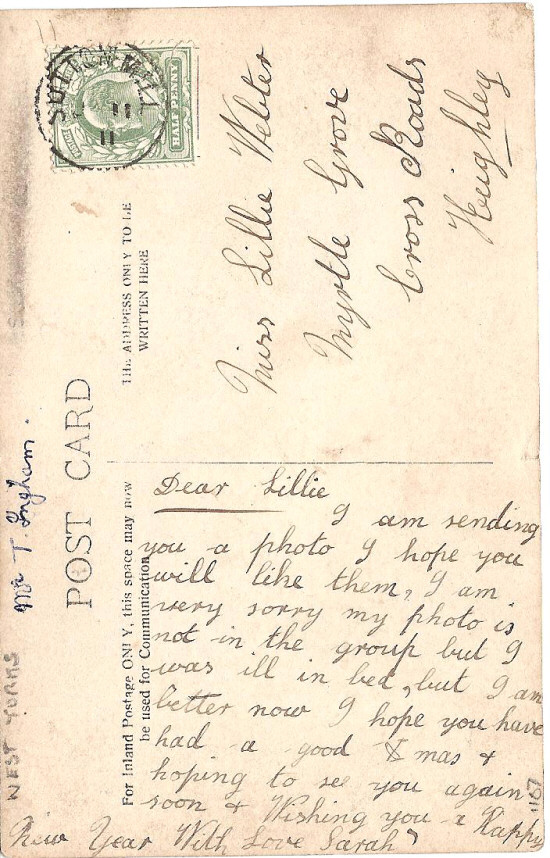 SUTTON MILL
11
HALF PENNY
POST CARD
THE ADDRESS ONLY TO BE
WRITTEN HERE
For Inland Postage ONLY, this space may now
be used for Communication
Mr T. Ingham.
WEST YORKS
Miss Lillie Webster
Myrtle Grove
Cross Roads
Keighley
Dear Lillie
I am sending
you a photo I hope you
will like them, I am
very sorry my photo is
not in the group but I
was ill in bed, but I am
better now I hope you have
had a good Xmas &
hoping to see you again
soon & Wishing you a Happy
New Year With Love Sarah